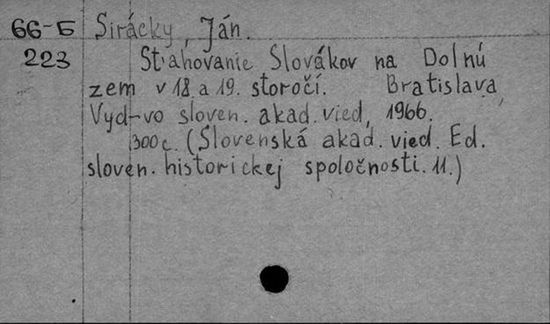 66-Б Sirácky, Ján.
223 Sťahovanie Slovákov na Dolnú
zem v 18 a 19. storočí. Bratislava,
Vyd-vo sloven. akad. vied, 1966.
300 с. (Slovenská akad. vied. Ed.
sloven. historickej spoločnosti. 11.)